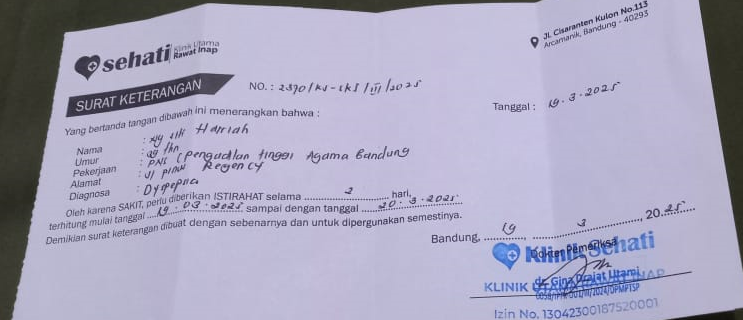 sehati Klinik Utama Rawat Inap
Jl. Cisaranten Kulon No.113
Arcamanik, Bandung - 40293
SURAT KETERANGAN
NO. : 2390/KU-LKS/III/2025
Tanggal : 19 · 3 · 2025
Yang bertanda tangan dibawah ini menerangkan bahwa :
Nama : Ny Harriah
Umur : thn
Pekerjaan : PNS (Pengadilan tinggi Agama Bandung
Alamat : Jl Regency
Diagnosa : Dyspepsia
Oleh karena SAKIT, perlu diberikan ISTIRAHAT selama 2 hari,
terhitung mulai tanggal 19 · 03 · 2025 sampai dengan tanggal 20 · 3 · 2025
Demikian surat keterangan dibuat dengan sebenarnya dan untuk dipergunakan semestinya.
Bandung, 19 3 2025
Dokter Pemeriksa
Klinik Sehati
dr. Gina Drajat Utami
KLINIK UTAMA RAWAT INAP
Izin No. 13042300187520001